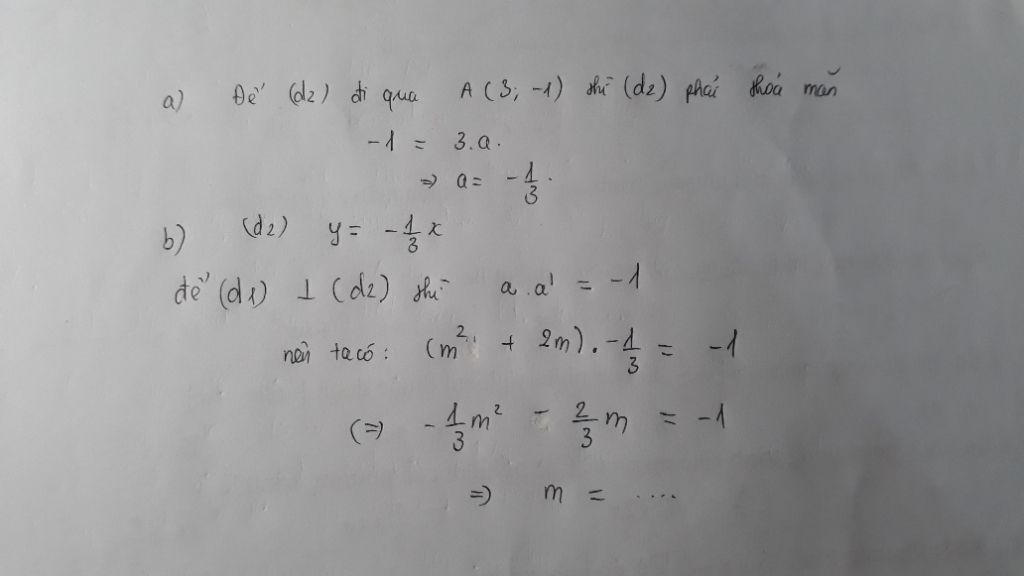 a) Để (d2) đi qua A (3; -1) thì (d2) phải thoả mãn
-1 = 3.a.
=> a = -1/3.
b) (d2) y = -1/3 x
để (d1) ⊥ (d2) thì a.a' = -1
nên ta có: (m² + 2m). -1/3 = -1
(=> -1/3 m² - 2/3 m = -1
=) m = ....